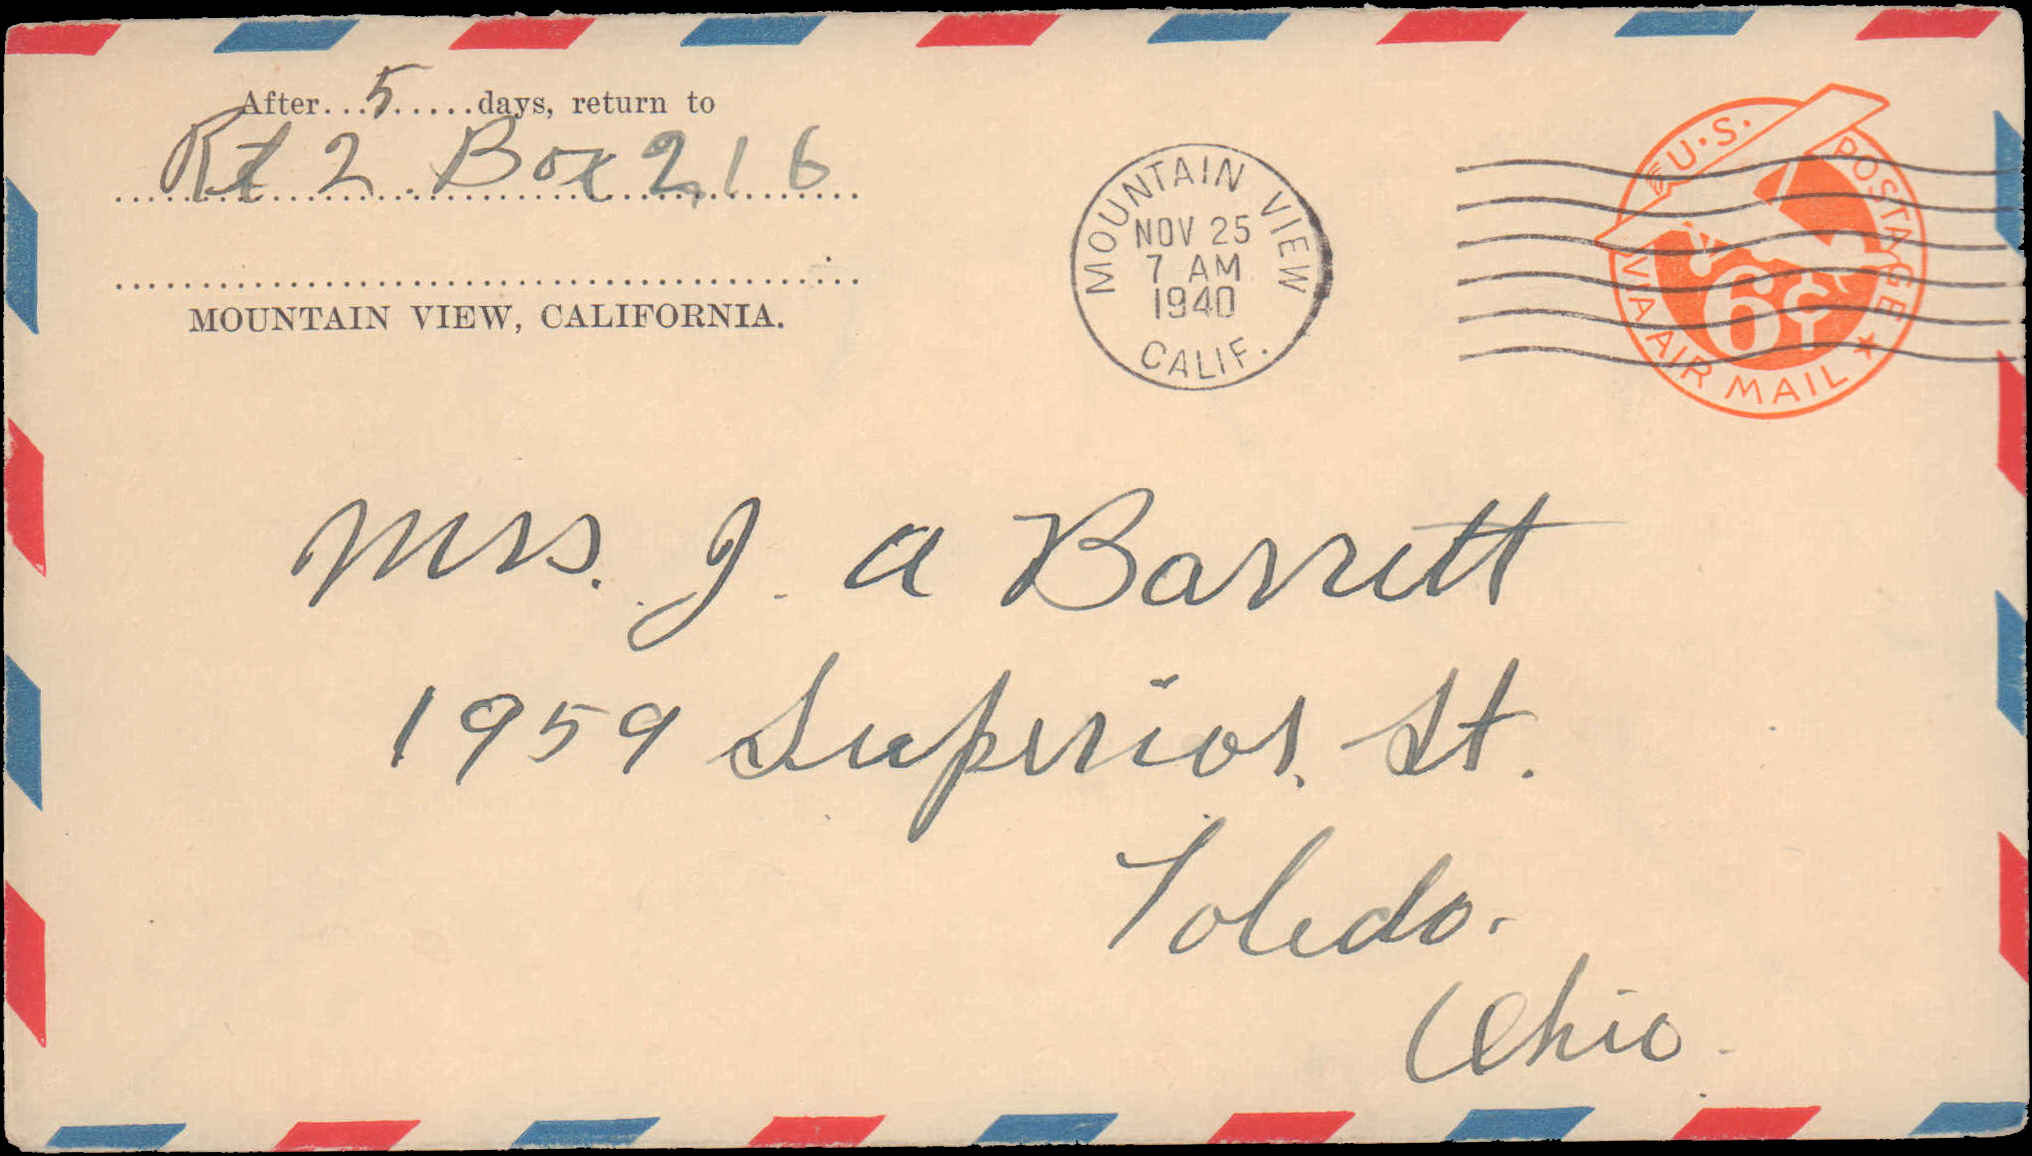 After...5.....days, return to
Rt 2 Box 216
MOUNTAIN VIEW, CALIFORNIA.
MOUNTAIN VIEW
NOV 25
7 AM
1940
CALIF.
U.S. POSTAGE
6¢
VIA AIR MAIL
Mrs. J. A Barrett
1959 Superior St.
Toledo.
Ohio